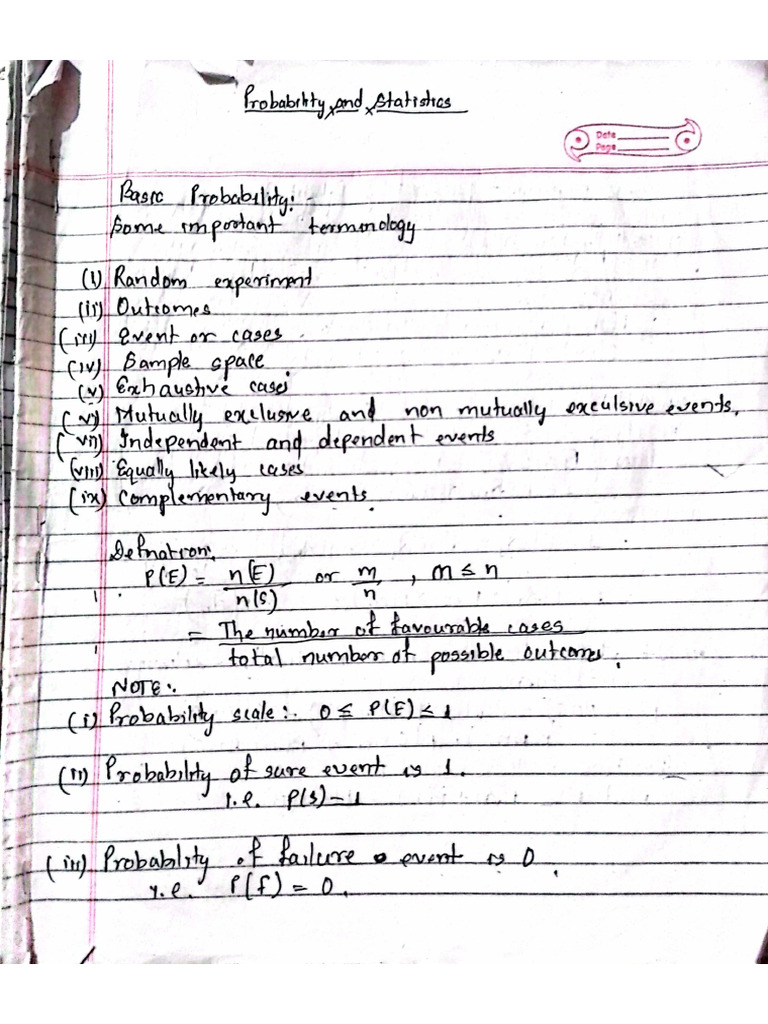 Probability and Statistics
Date
Page
Basic Probability:-
Some important terminology
(i) Random experiment
(ii) Outcomes
(iii) Event or cases
(iv) Sample space.
(v) Exhaustive cases
(vi) Mutually exclusive and non mutually exculsive events.
(vii) Independent and dependent events
(viii) Equally likely cases
(ix) Complementary events.
Defination:
P(E) = n(E)/n(S) or m/n , m ≤ n
= The number of favourable cases
total number of possible outcomes.
NOTE:.
(i) Probability scale:. 0 ≤ P(E) ≤ 1
(ii) Probability of sure event is 1.
i.e. P(S)=1
(iii) Probability of failure event is 0.
i.e. P(f) = 0.